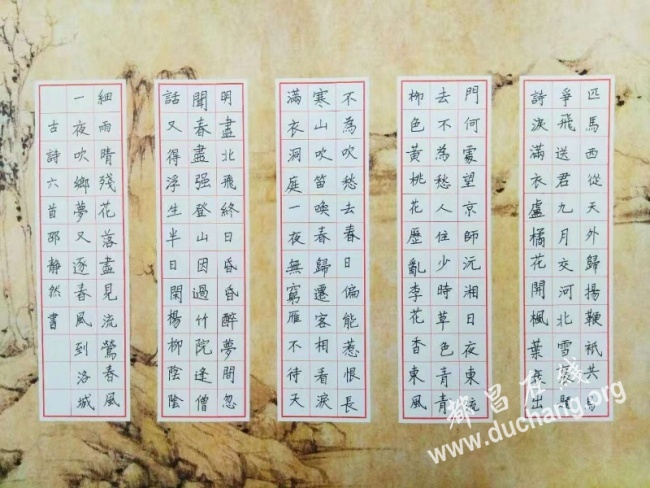 匹馬西從天外歸揚鞭祇共鳥
爭飛送君九月交河北雪裏題
詩淚滿衣盧橘花開楓葉衰出
門何處望京師沅湘日夜東流
去不為愁人住少時草色青青
柳色黃桃花歷亂李花香東風
不為吹愁去春日偏能惹恨長
寒山吹笛喚春歸遷客相看淚
滿衣洞庭一夜無窮雁不待天
明盡北飛終日昏昏醉夢間忽
聞春盡强登山因過竹院逢僧
話又得浮生半日閑楊柳陰陰
細雨晴殘花落盡見流鶯春風
一夜吹鄉夢又逐春風到洛城
古詩六首邵靜然書
都昌在线
www.duchang.org